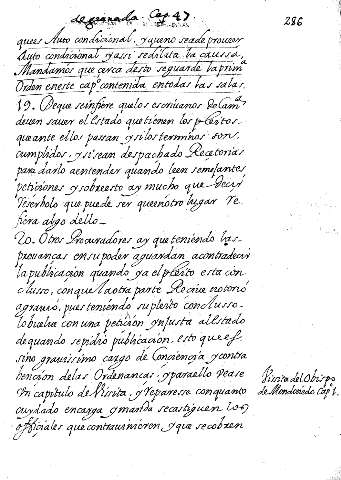 de granada. Cap 47
286
que es Auto condicional, y que no se a de proveer
Auto condicional, y assi se dilata la caussa.
Mandamos que cerca desto se guarde la prim.ª
Orden en este cap.º contenida en todas las salas.
19. De que se infiere que los escrivanos de Cam.ª
deven saver el estado que tienen los pleitos
que ante ellos passan y si los terminos son
cumplidos, y si sean despachado Recetorias
para darlo a entender quando leen semejantes
peticiones y sobre esto ay mucho que decir
reserbolo que puede ser que en otro lugar re
fiera algo dello
20. Otros Procuradores ay que teniendo las
provanças en su poder aguardan a contradecir
la publicacion quando ya el pleito esta con
cluso, con que la otra parte Recive notorio
agravio, pues teniendo su pleito concluso
lo buelve con una peticion ynjusta al estado
de quando se pidio publicacion, esto que es
sino gravissimo cargo de conciencia y contra
bencion de las Ordenanças, y para ello vease
un capitulo de Visita, y repares se con quanto
cuydado encarga y manda se castiguen los
officiales que contravinieron, y que se cobren
Visita del Obispo
de Mondoñedo Cap. 1.